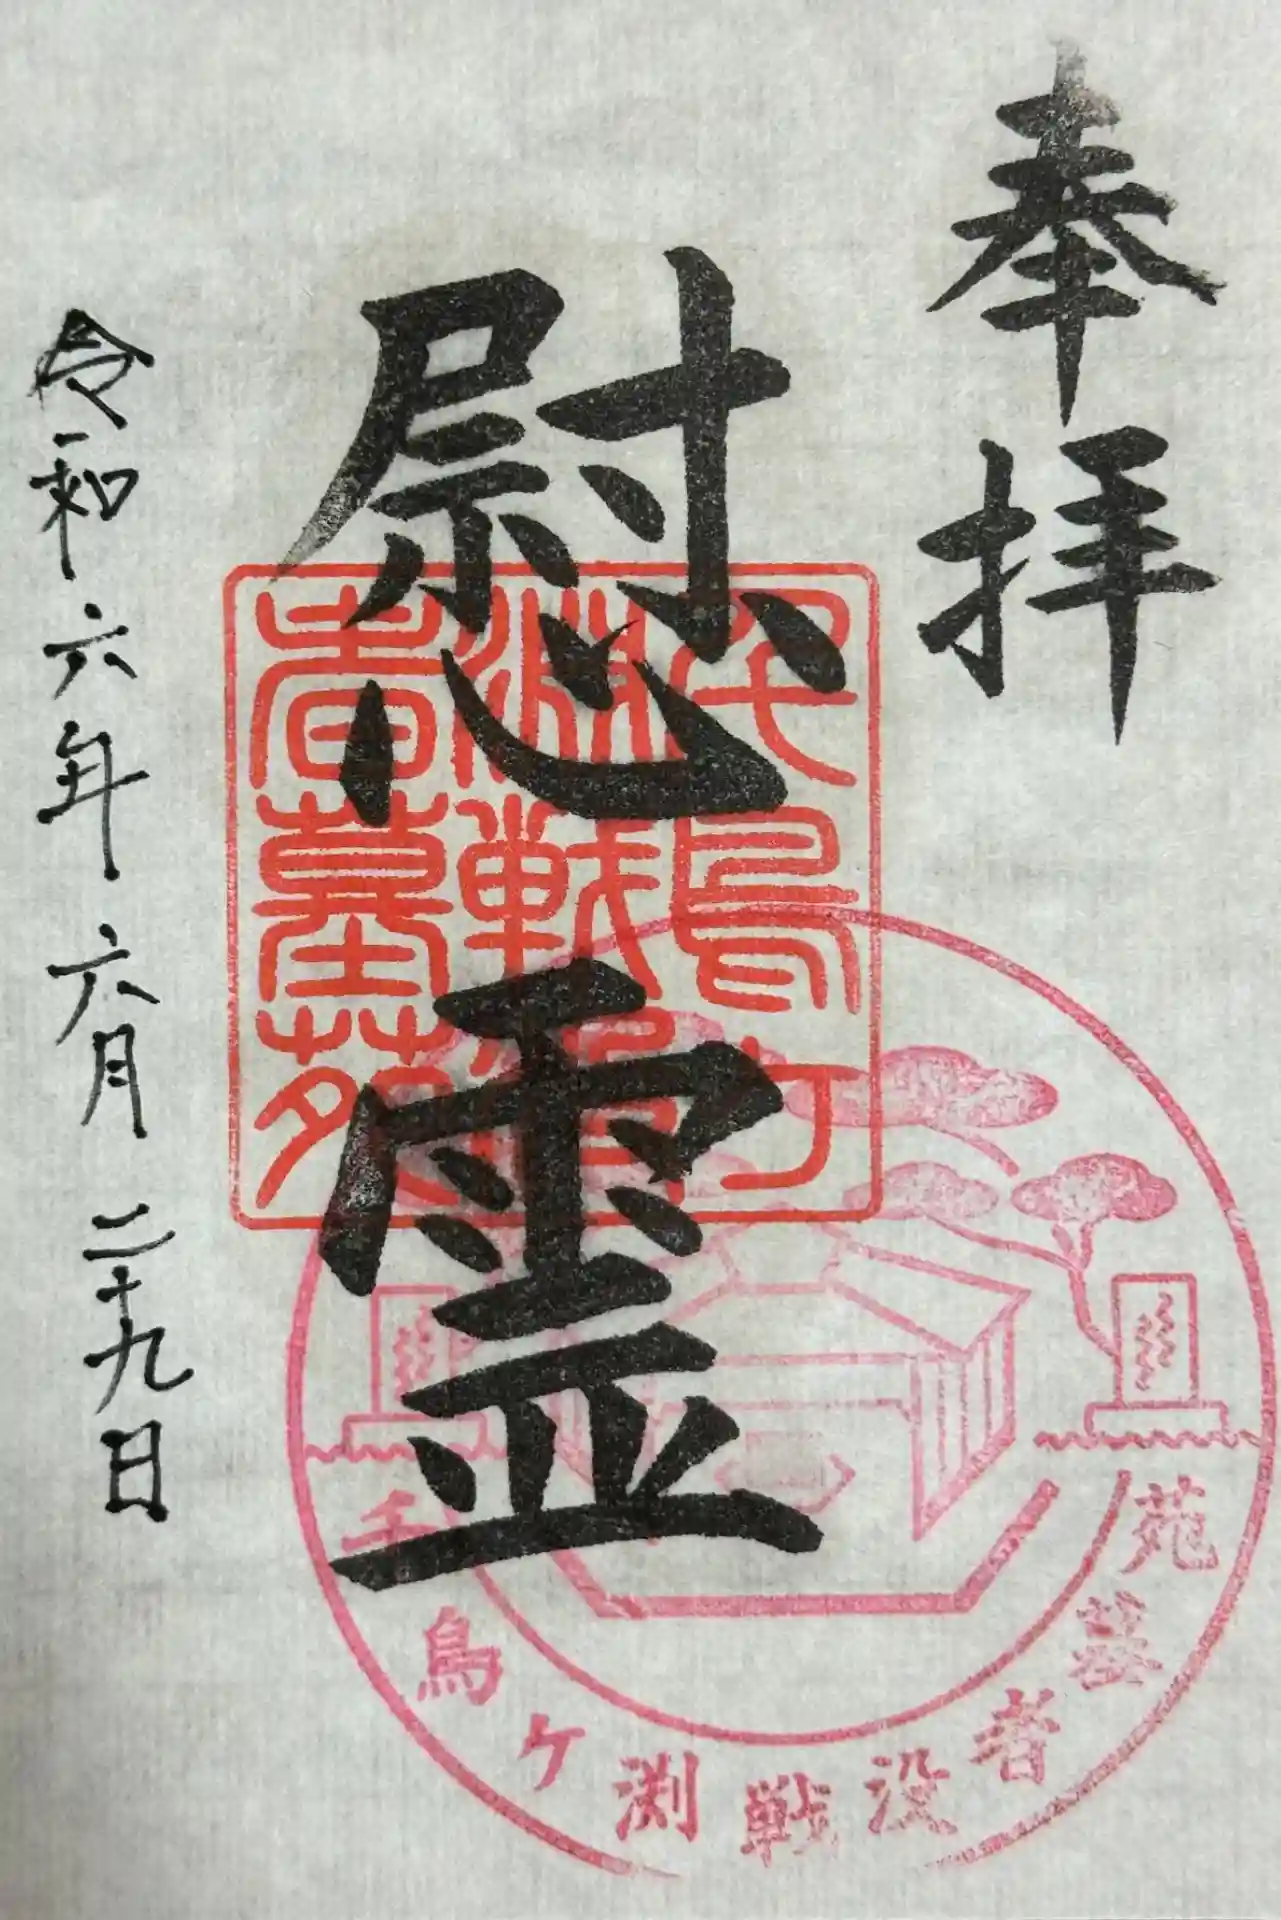 奉拝
慰霊
千鳥ケ
淵戦没
者墓苑
令和六年六月二十九日
千鳥ケ淵戦没者墓苑